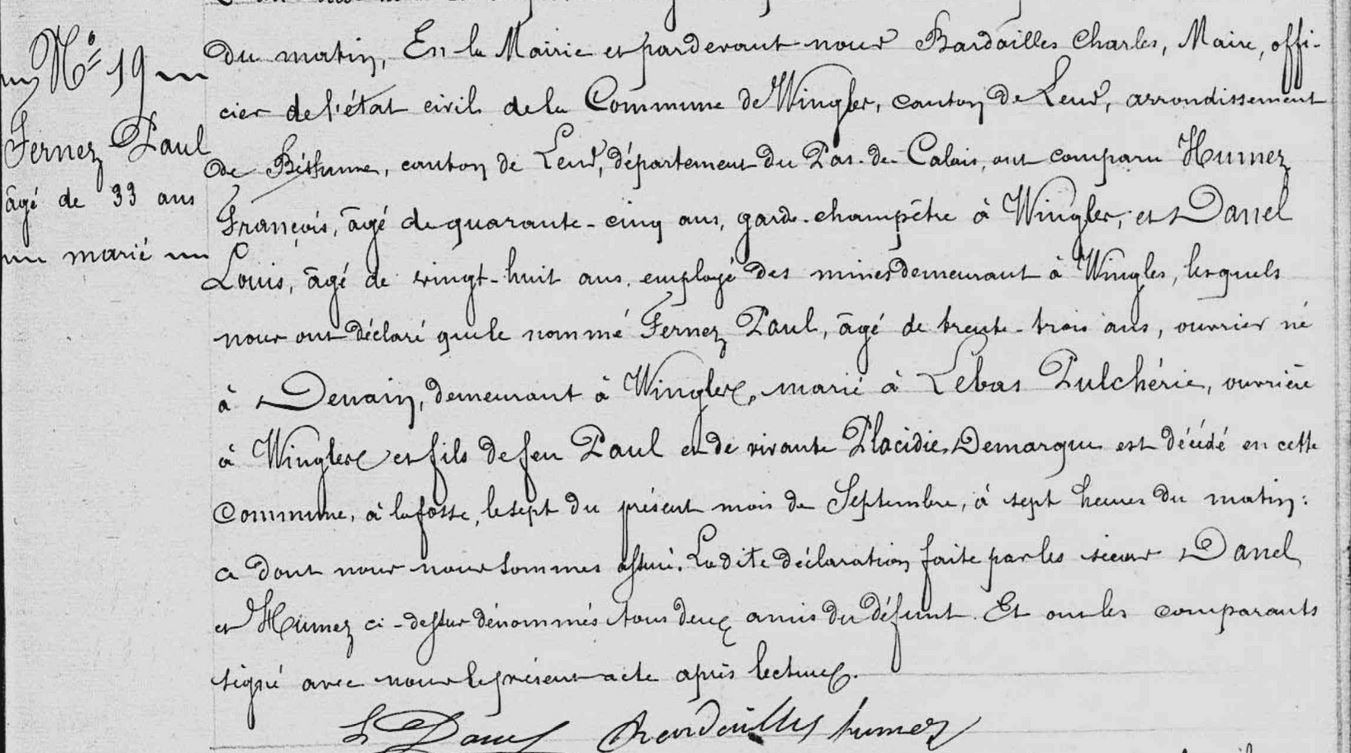 N° 19
Fernez Paul
âgé de 33 ans
marié
du matin, En la Mairie et pardevant nous Bardailles Charles, Maire, offi-
cier de l'état civil de la Commune de Wingles, canton de Lens, arrondissement
de Béthune, canton de Lens, département du Pas-de-Calais, ont comparu Humez
François, âgé de quarante-cinq ans, garde-champêtre à Wingles, et Danel
Louis, âgé de vingt-huit ans, employé des mines demeurant à Wingles, lesquels
nous ont déclaré que le nommé Fernez Paul, âgé de trente-trois ans, ouvrier né
à Denain, demeurant à Wingles, marié à Lebas Pulchérie, ouvrière
à Wingles et fils de feu Paul et de vivante Placidie Demarque est décédé en cette
Commune, à la fosse, le sept du présent mois de Septembre, à sept heures du matin:
ce dont nous nous sommes assuré. La dite déclaration faite par les sieurs Danel
et Humez ci-dessus dénommés tous deux amis du défunt. Et ont les comparants
signé avec nous le présent acte après lecture.
L Danel Bardailles humez